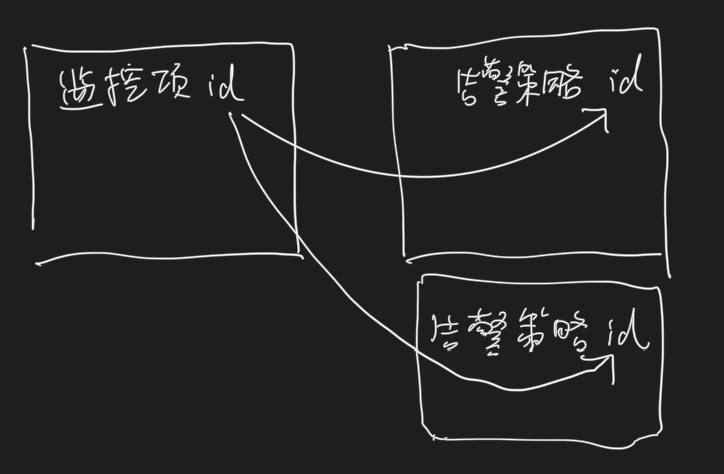 监控项 id
告警策略 id
告警策略 id